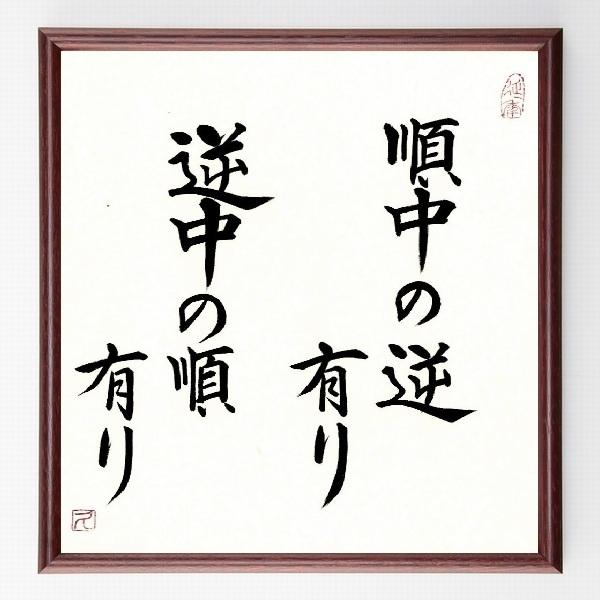 順中の逆
有り
逆中の順
有り